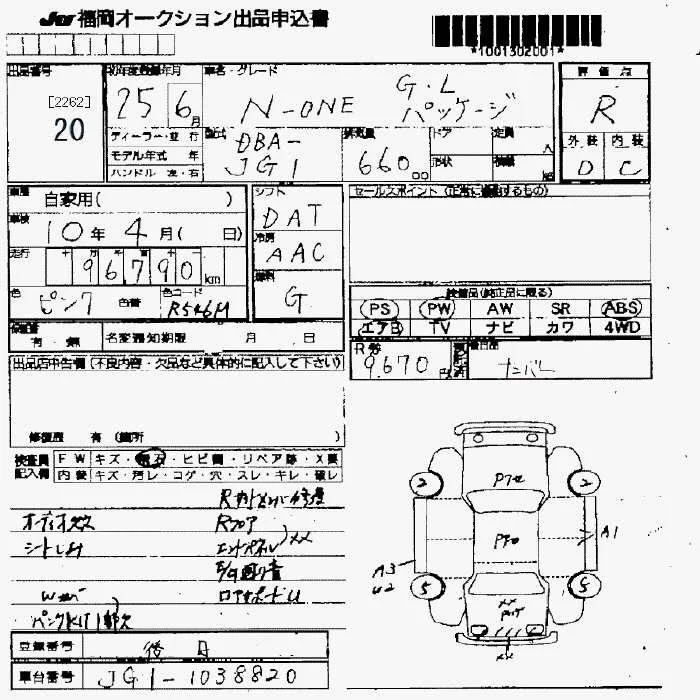 JU 福岡オークション出品申込書
*1001302001*
出品番号 初年度登録年月 車名・グレード 評価点
[2262]
20
25 6月
N-ONE G・L パッケージ
R
外装 内装
D C
ディーラー・並行
モデル年式 年
ハンドル 左・右
型式 DBA-JG1
排気量 660 cc
ドア 定員 人
形状 積載 kg
車歴 自家用( )
車検 10年 4月( 日)
走行 96790 km
色 ピンク 色替 色コード R546M
シフト DAT
冷房 AAC
燃料 G
セールスポイント (正常に機能するもの)
装備品(純正品に限る)
PS PW AW SR ABS
エアB TV ナビ カワ 4WD
保証書 有・無 名変通知期限 月 日
R券 9,670円
ナンバー
出品店申告欄 (不良内容・欠品など具体的に記入して下さい)
修復歴 有 (箇所 )
検査員記入欄
FW キズ・飛石・ヒビ割・リペア跡・X要
内装 キズ・汚レ・コゲ・穴・スレ・キレ・破レ
Rフロア
エンドパネル XX
シートしみ
ロアサポートU
パンクKIT欠
2 2
5 5
A1
A3
U2
XX
XX
登録番号 後日
車台番号 JG1-1038820